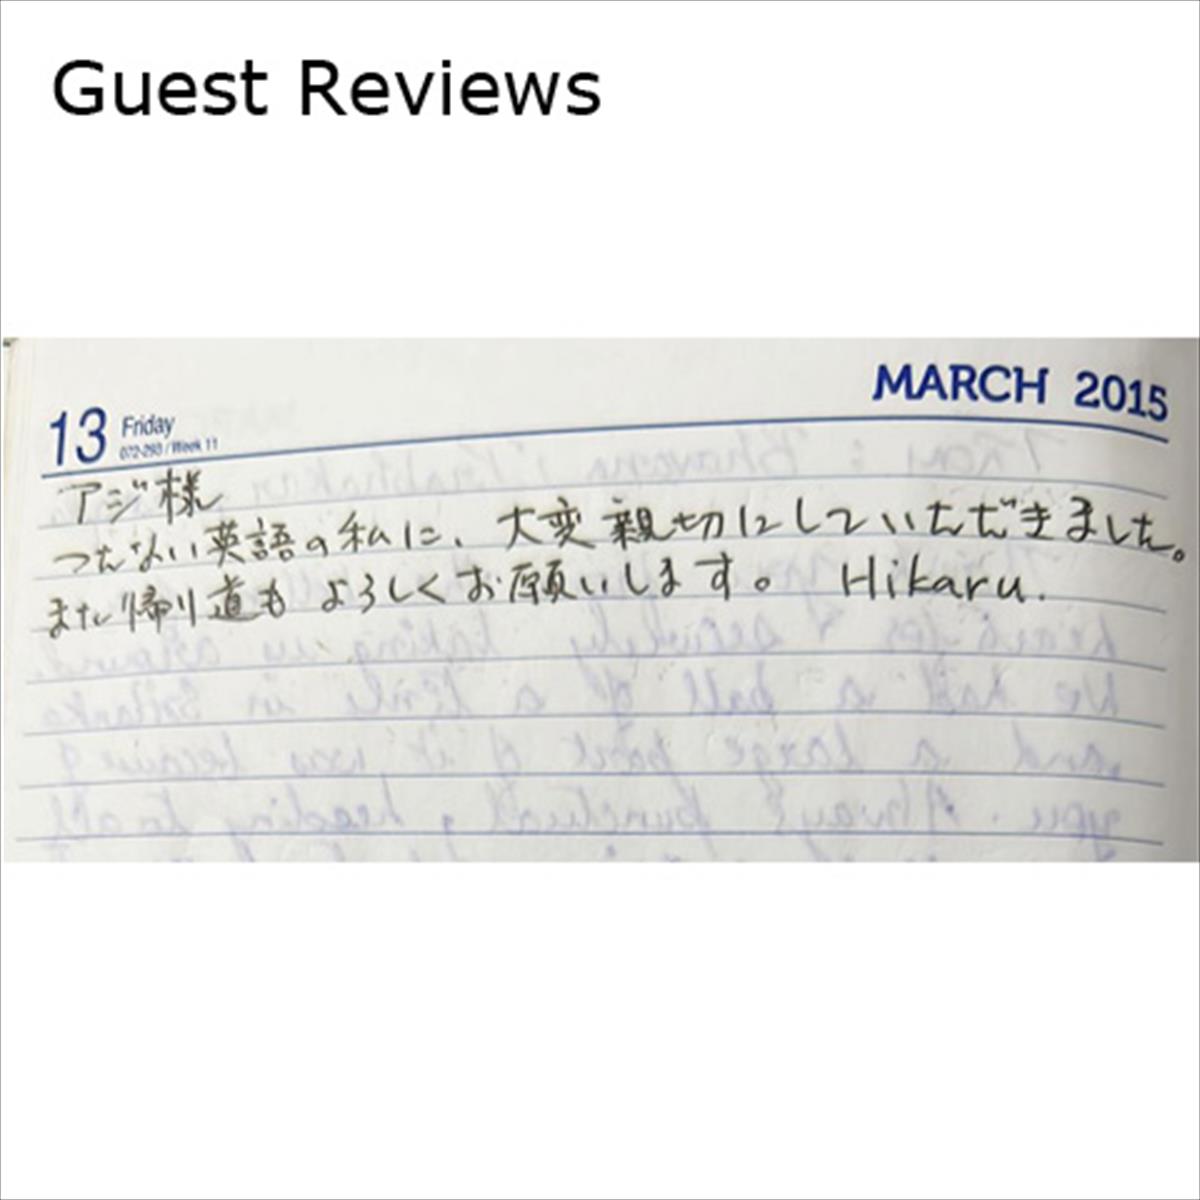 Guest Reviews
MARCH 2015
13 Friday
072-293 / Week 11
アジ様
つたない英語の私に、大変親切にしていただきました。
また帰り道もよろしくお願いします。 Hikaru.